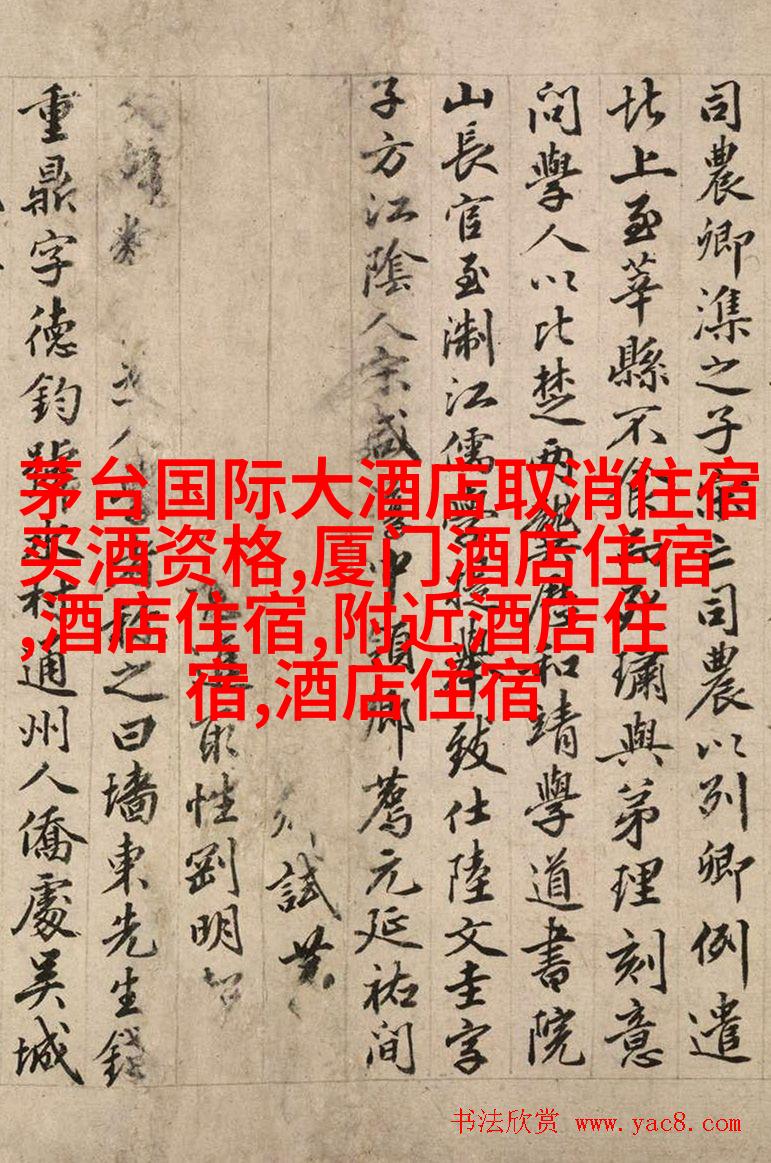 司農卿潗之子宋亡司農以列卿例遣
北上至莘縣不食而死與弟理刻意
問學人以比楚兩龔歷和靖學道書院
山長官至淛江儒學提舉致仕陸文圭字
子方江陰人宋咸淳中領鄉薦元延祐間
試
性剛明
人稱之曰墻東先生錢
重鼎字德鈞號水村通州人僑處吳城
茅台国际大酒店取消住宿
买酒资格,厦门酒店住宿
,酒店住宿,附近酒店住
宿,酒店住宿
书法欣赏 www.yac8.com